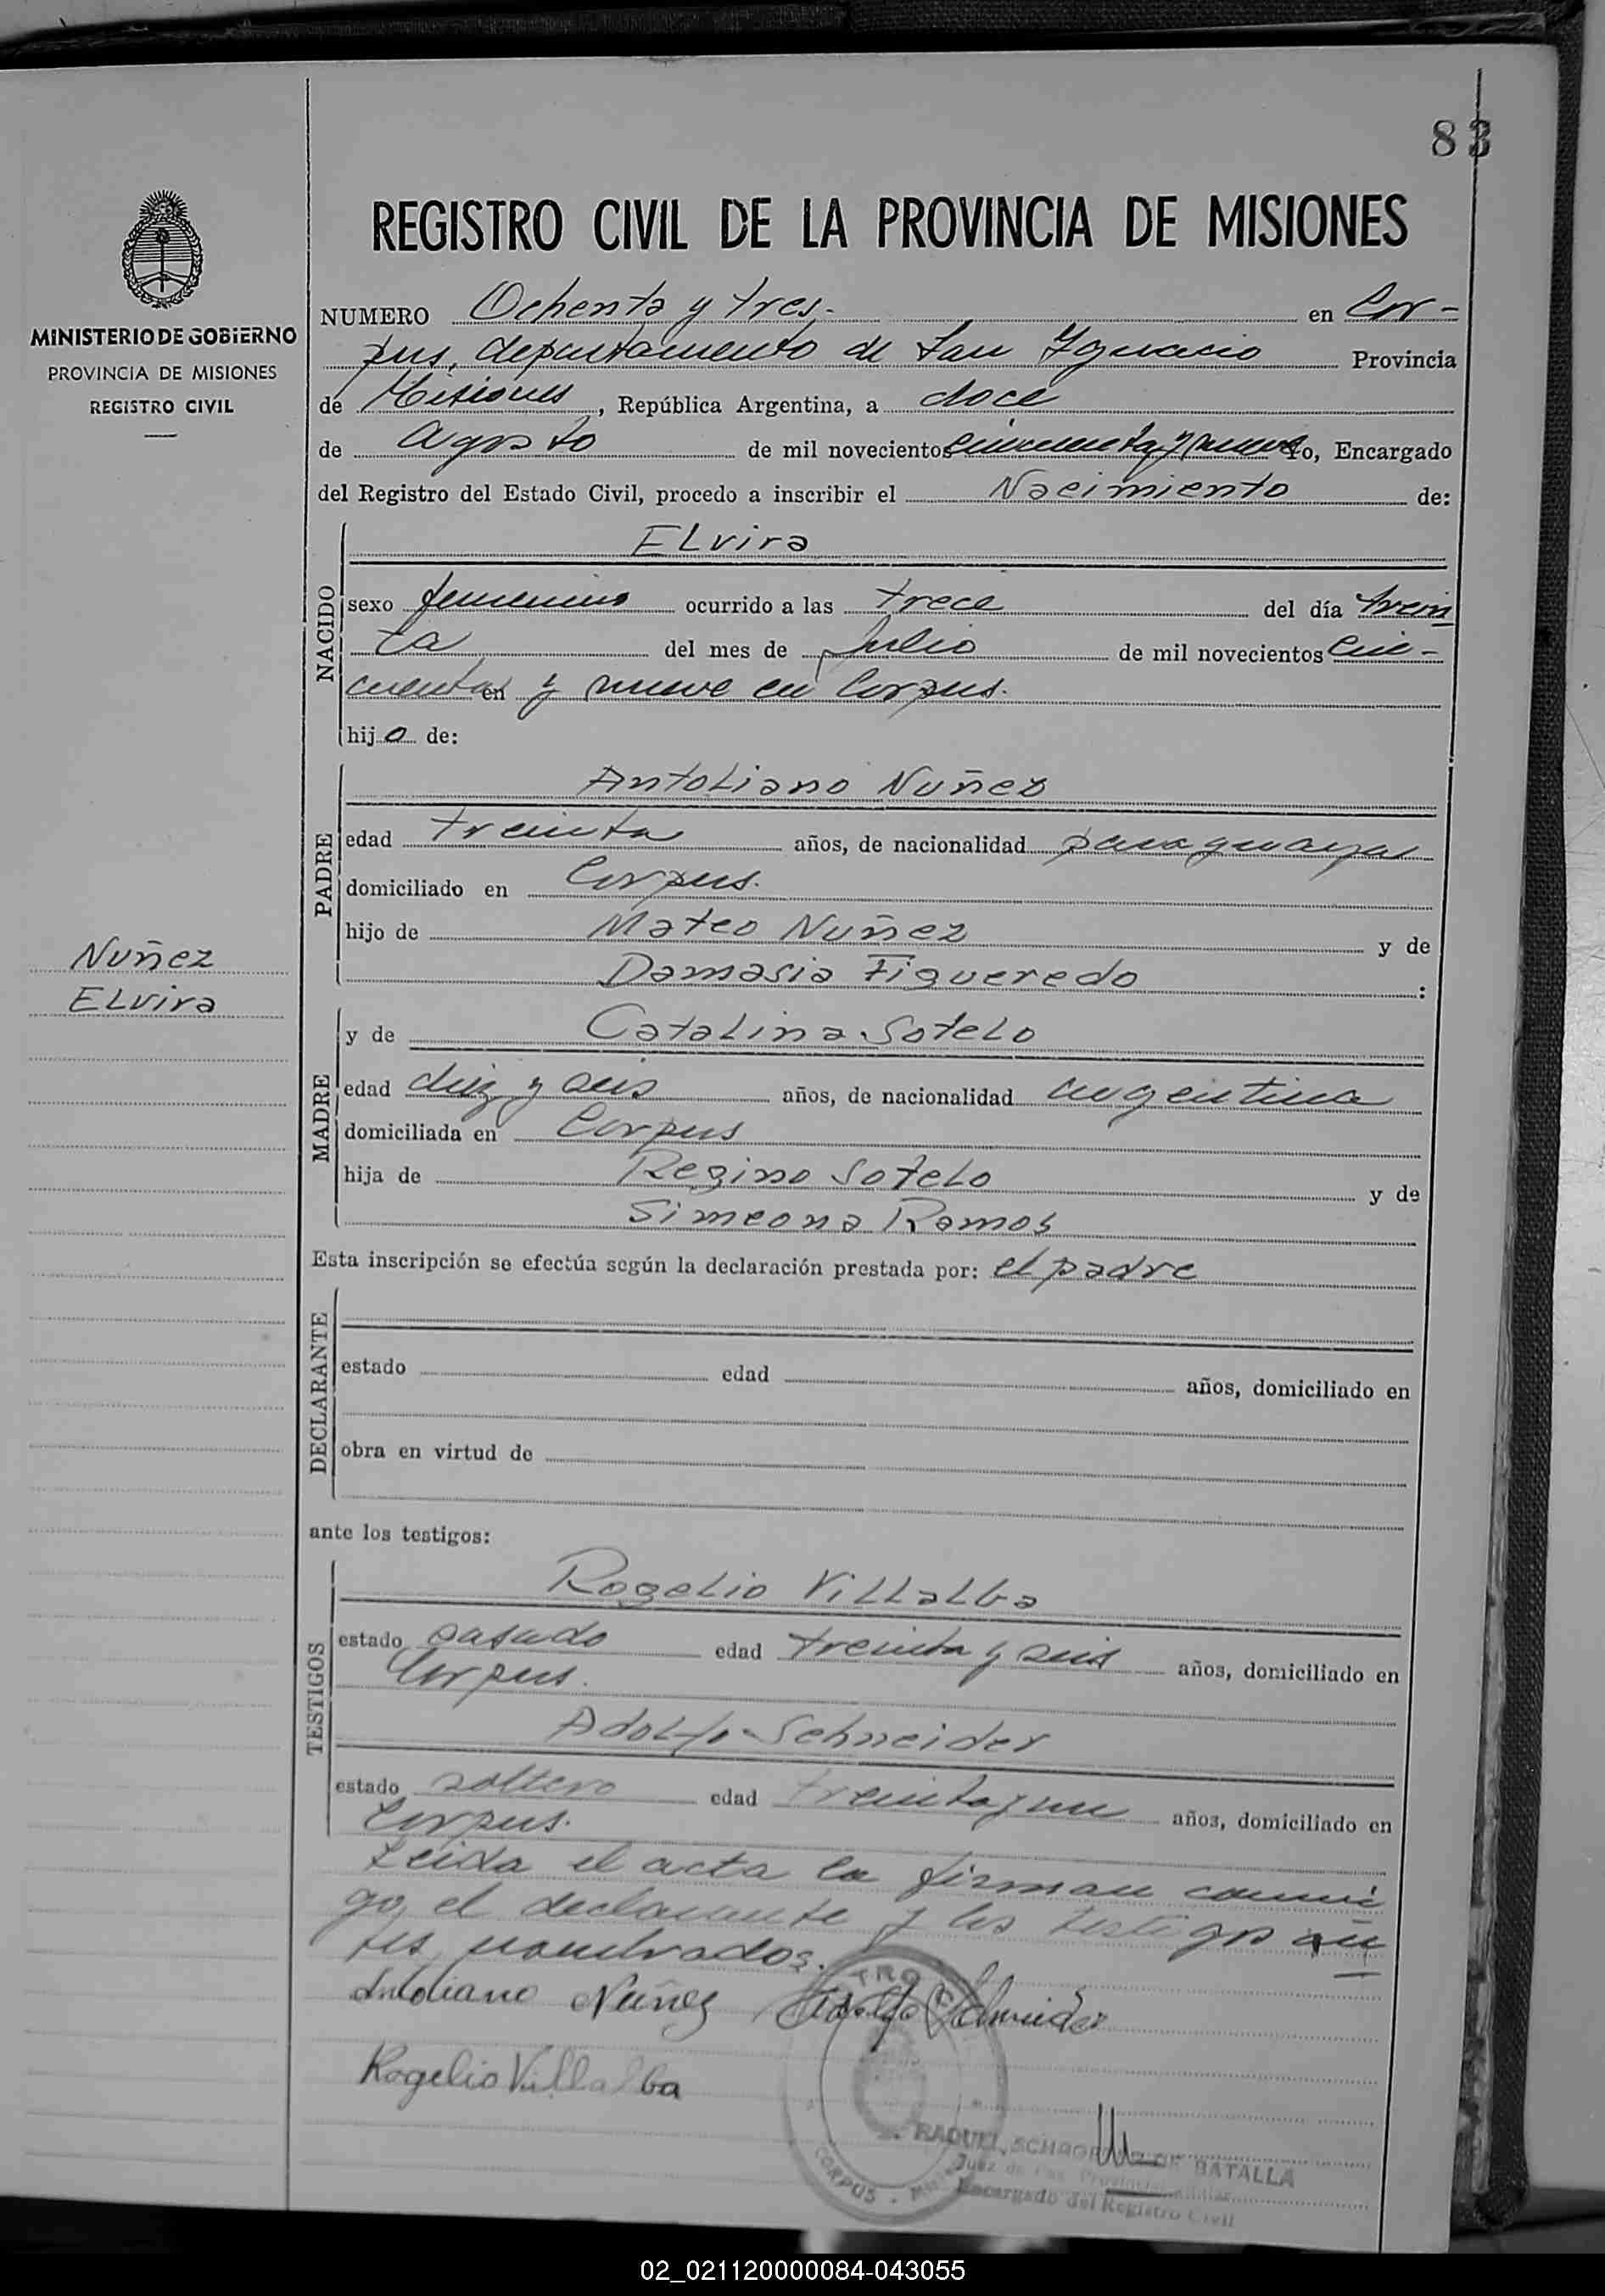 83
REGISTRO CIVIL DE LA PROVINCIA DE MISIONES
MINISTERIO DE GOBIERNO
PROVINCIA DE MISIONES
REGISTRO CIVIL
NUMERO Ochenta y tres.- en Cor-
pus, departamento de San Ignacio Provincia
de Misiones, República Argentina, a doce
de agosto de mil novecientos cincuenta y nueve yo, Encargado
del Registro del Estado Civil, procedo a inscribir el Nacimiento de:
NACIDO
Elvira
sexo femenino ocurrido a las trece del día trein
ta del mes de Julio de mil novecientos cin-
cuenta en y nueve en Corpus.
hija de:
PADRE
Antoliano Nuñez
edad treinta años, de nacionalidad paraguaya
domiciliado en Corpus.
hijo de Mateo Nuñez y de
Damasia Figueredo :
Nuñez
Elvira
MADRE
y de Catalina Sotelo
edad diez y seis años, de nacionalidad argentina
domiciliada en Corpus
hija de Regino Sotelo y de
Simeona Ramos
Esta inscripción se efectúa según la declaración prestada por: el padre
DECLARANTE
estado edad años, domiciliado en
obra en virtud de
ante los testigos:
TESTIGOS
Rogelio Villalba
estado casado edad treinta y seis años, domiciliado en
Corpus.
Adolfo Schneider
estado soltero edad treinta y un años, domiciliado en
Corpus.
Leida el acta la firman conmi
go, el declarante y los testigos an
tes nombrados.
Antoliano Nuñez Adolfo Schneider
Rogelio Villalba
TRO C
CORPUS -
RAQUEL DE BATALLA
Juez de Paz
Encargado del Registro Civil
02_021120000084-043055